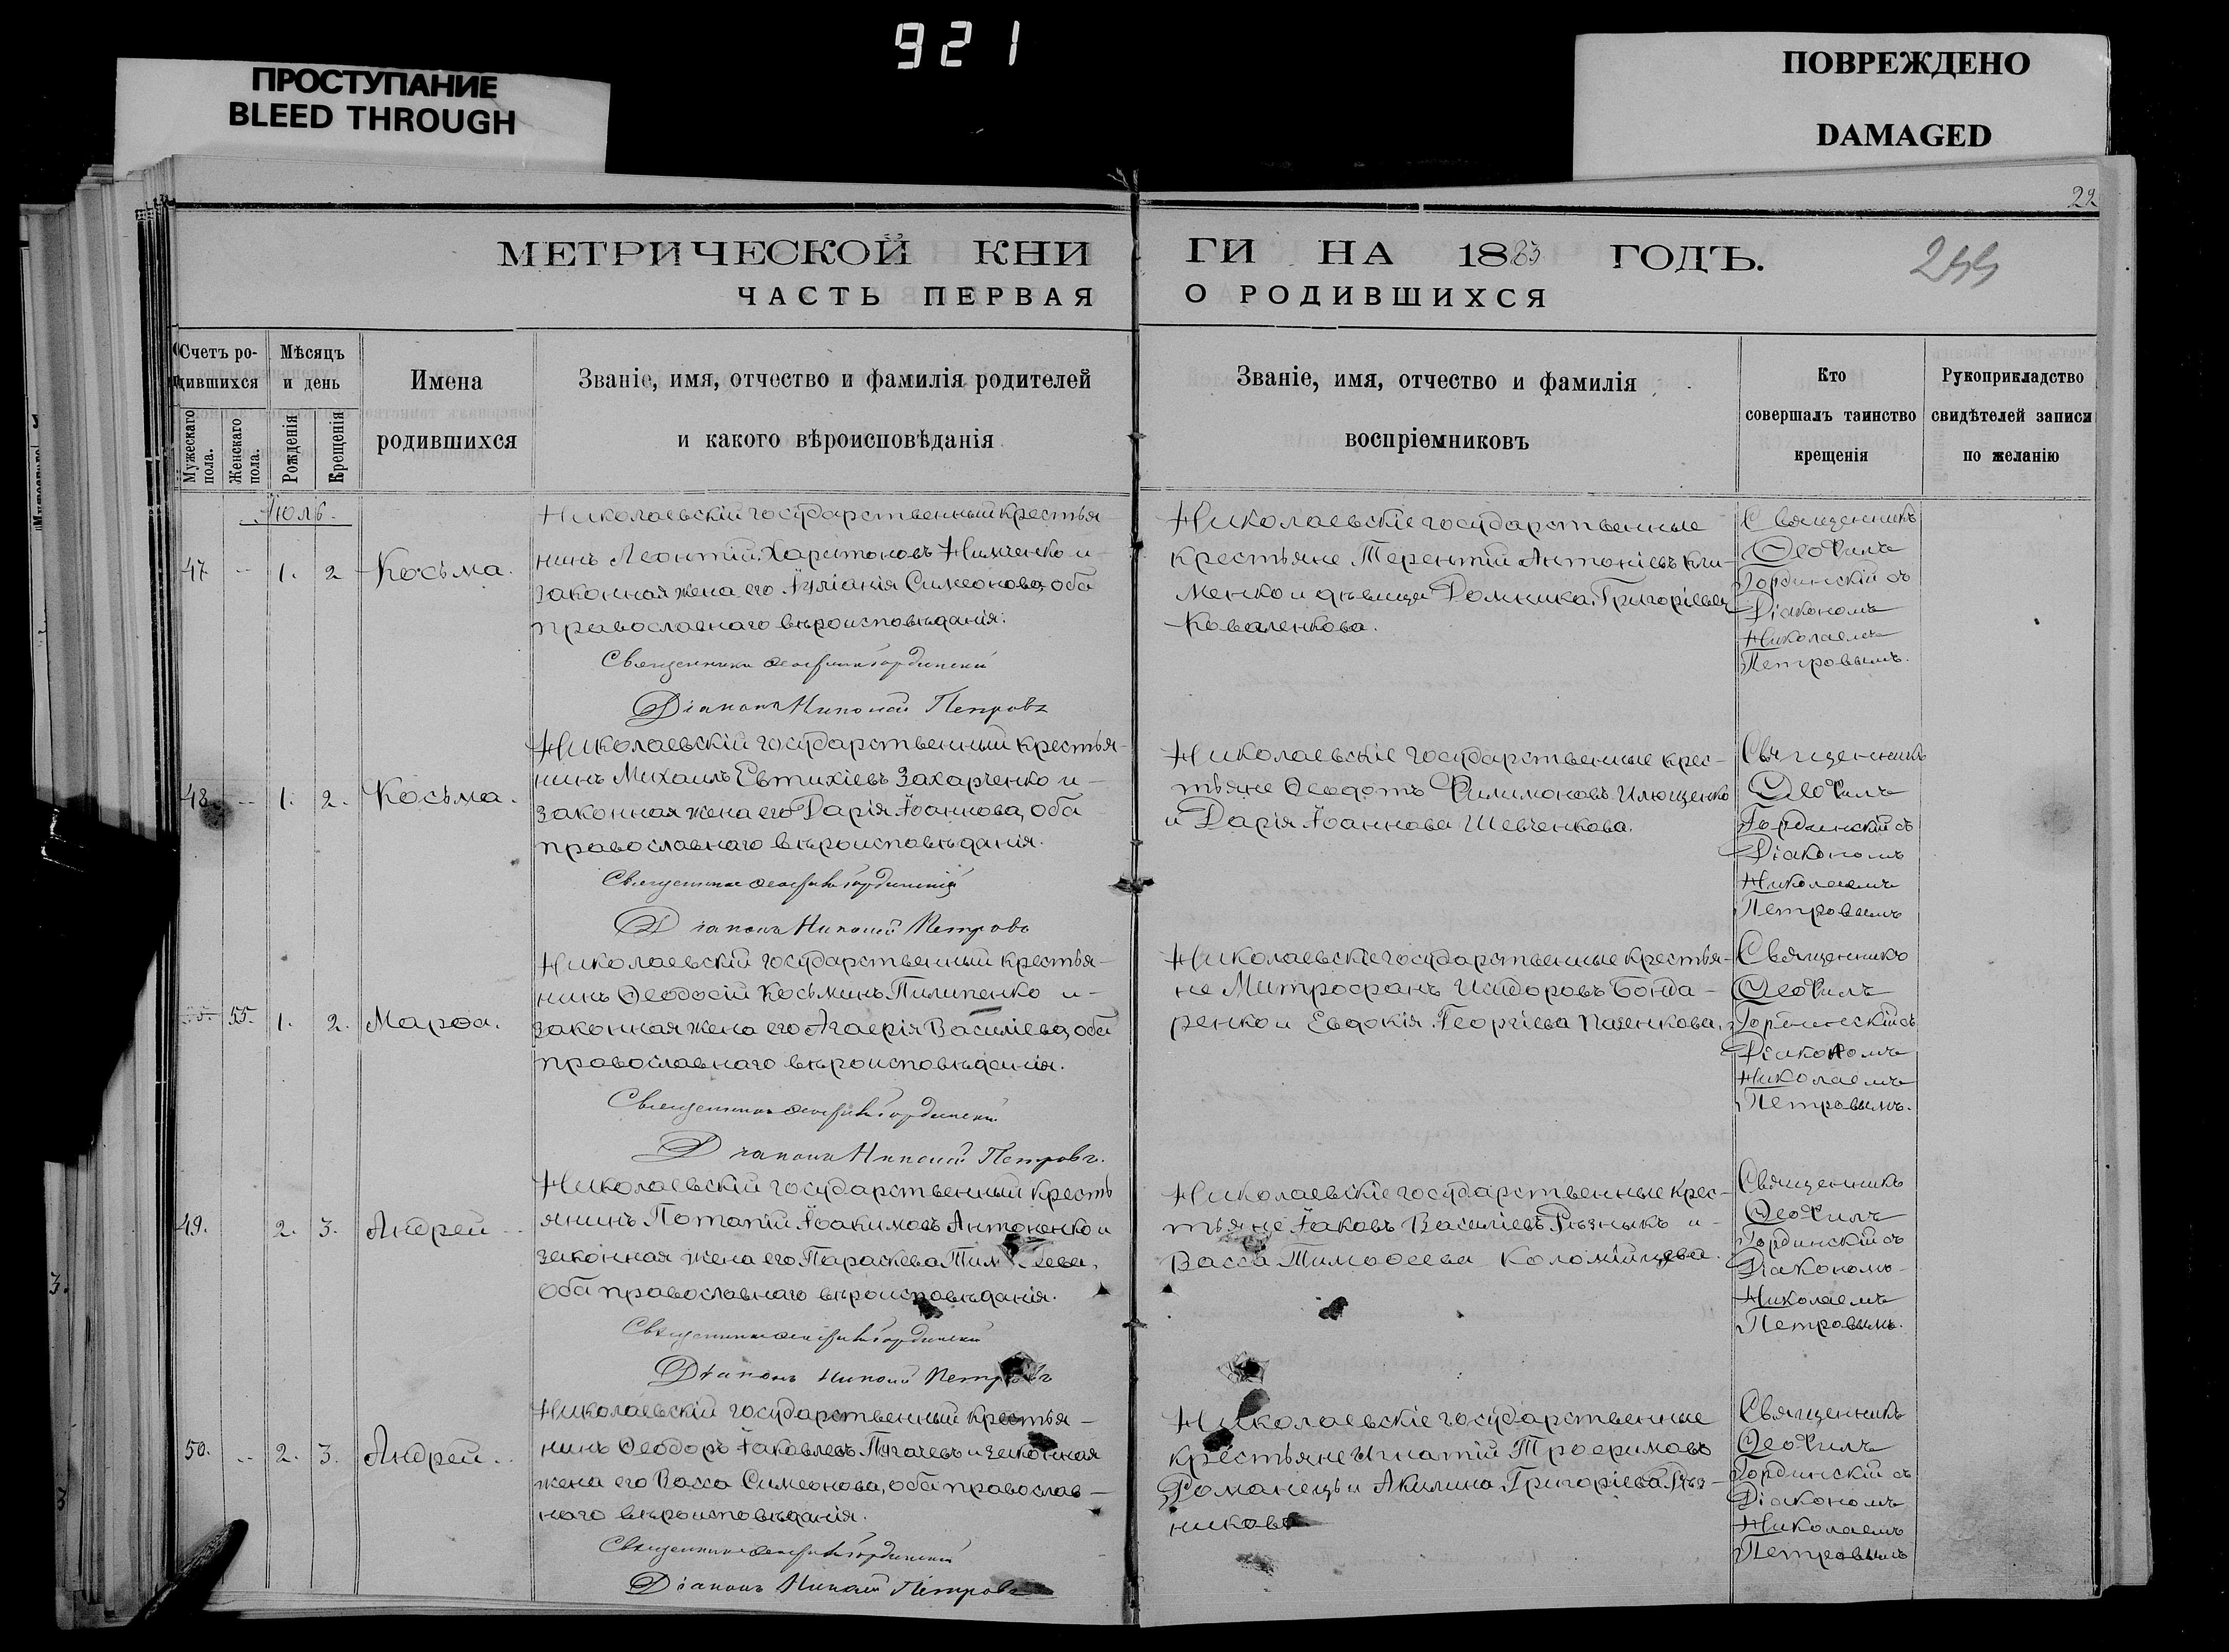 921
ПРОСТУПАНИЕ
BLEED THROUGH
ПОВРЕЖДЕНО
DAMAGED
22
МЕТРИЧЕСКОЙ КНИ
ГИ НА 1883 ГОДЪ.
ЧАСТЬ ПЕРВАЯ
О РОДИВШИХСЯ
Счетъ ро-
дившихся
Мужескаго пола.
Женскаго пола.
Мѣсяцъ
и день
Рожденія
Крещенія
Имена
родившихся
Званіе, имя, отчество и фамилія родителей
и какого вѣроисповѣданія
Званіе, имя, отчество и фамилія
воспріемниковъ
Кто
совершалъ таинство
крещенія
Рукоприкладство
свидѣтелей записи
по желанію
Июль.
47 - 1. 2 Косьма.
Николаевскій государственный крестья-
нинъ Леонтій Харитоновъ Нимченко и
законная жена его Іуліанія Симеонова, оба
православнаго вѣроисповѣданія.
Священникъ Ѳеофилъ Гординскій
Діаконъ Николай Петровъ
Николаевскіе государственные
крестьяне Терентій Антоніевъ Кли-
менко и дѣвица Домника Григоріева
Коваленкова.
Священникъ
Ѳеофилъ
Гординскій съ
Діакономъ
Николаемъ
Петровымъ.
48 - 1. 2. Косьма.
Николаевскій государственный крестья-
нинъ Михаилъ Евтихіевъ Захарченко и
законная жена его Дарія Іоаннова, оба
православнаго вѣроисповѣданія.
Священникъ Ѳеофилъ Гординскій
Діаконъ Николай Петровъ
Николаевскіе государственные крес-
тьяне Ѳеодотъ Филимоновъ Илющенко
и Дарія Іоаннова Шевченкова.
Священникъ
Ѳеофилъ
Гординскій съ
Діакономъ
Николаемъ
Петровымъ
55. 1. 2. Марѳа.
Николаевскій государственный крестья-
нинъ Ѳеодосій Косьминъ Пилипенко и
законная жена его Агаѳія Василіева, оба
православнаго вѣроисповѣданія.
Священникъ Ѳеофилъ Гординскій
Діаконъ Николай Петровъ.
Николаевскіе государственные крестья-
не Митрофанъ Исидоровъ Бонда-
ренко и Евдокія Георгіева
Священникъ
Ѳеофилъ
Гординскій съ
Діакономъ
Николаемъ
Петровымъ.
49. 2. 3. Андрей
Николаевскій государственный кресть
янинъ Потапій Іоакимовъ Антоненко и
законная жена его Параскева
оба православнаго вѣроисповѣданія.
Священникъ Ѳеофилъ Гординскій
Діаконъ Николай Петровъ
Николаевскіе государственные крес-
тьяне Іаковъ Василіевъ Рѣзникъ и
Васса Тимоѳеева Коломійцева.
Священникъ
Ѳеофилъ
Гординскій съ
Діакономъ
Николаемъ
Петровымъ.
50. - 2. 3. Андрей.
Николаевскій государственный крестья-
нинъ Ѳеодоръ Іаковлевъ Пугачевъ и законная
жена его Васса Симеонова, оба православ-
наго вѣроисповѣданія.
Священникъ Ѳеофилъ Гординскій
Діаконъ Николай Петровъ
Николаевскіе государственные
крестьяне Игнатій Трофимовъ
Романецъ и Акилина Григоріева Рѣз-
никова
Священникъ
Ѳеофилъ
Гординскій съ
Діакономъ
Николаемъ
Петровымъ